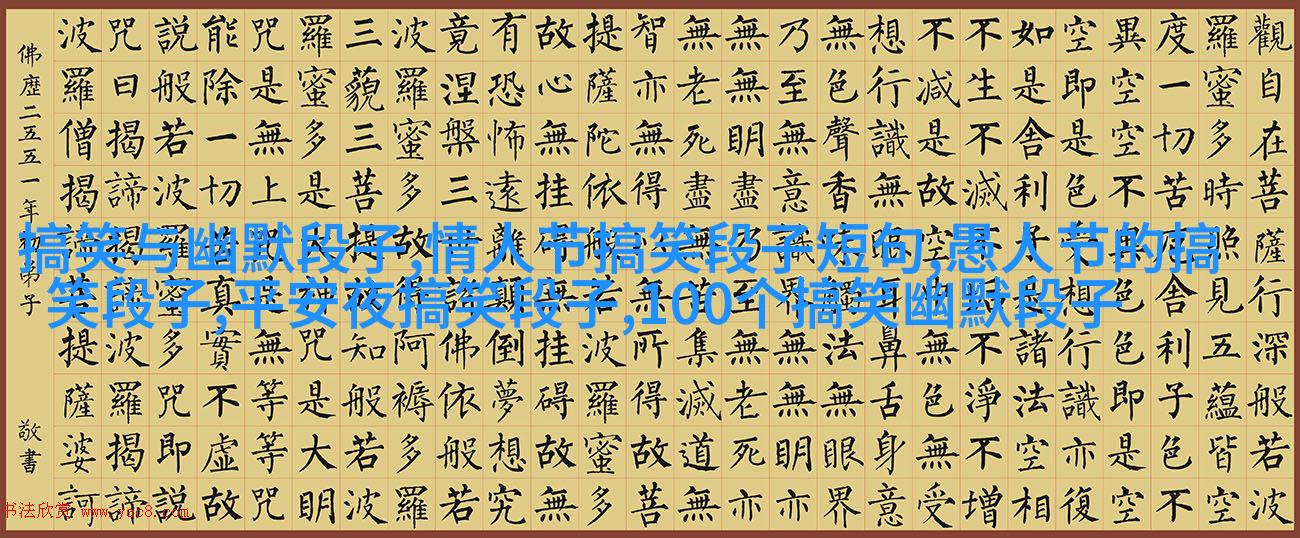 觀自在菩薩行深般若波
羅蜜多時照見五蘊皆空
度一切苦厄舍利子色不
異空空不異色色即是空
空即是色受想行識亦復
如是舍利子是諸法空相
不生不滅不垢不淨不增
不減是故空中無色無受
想行識無眼耳鼻舌身意
無色聲香味觸法無眼界
乃至無意識界無無明亦
無無明盡乃至無老死亦
無老死盡無苦集滅道無
智亦無得以無所得故菩
提薩陀依般若波羅蜜多
故心無挂礙無挂礙故無
有恐怖遠離顛倒夢想究
竟涅槃三世諸佛依般若
波羅蜜多故得阿褥多羅
三藐三菩提故知般若波
羅蜜多是大神咒是大明
咒是無上咒是無等等咒
能除一切苦真實不虛故
說般若波羅蜜多咒即說
咒曰揭諦揭諦波羅揭諦
波羅僧揭諦菩提薩婆訶
佛歷二五五一年初弟子 敬書
搞笑与幽默段子,情人节搞笑段子短句,愚人节的搞
笑段子,平安夜搞笑段子,100个搞笑幽默段子
书法欣赏 www.yac8.com